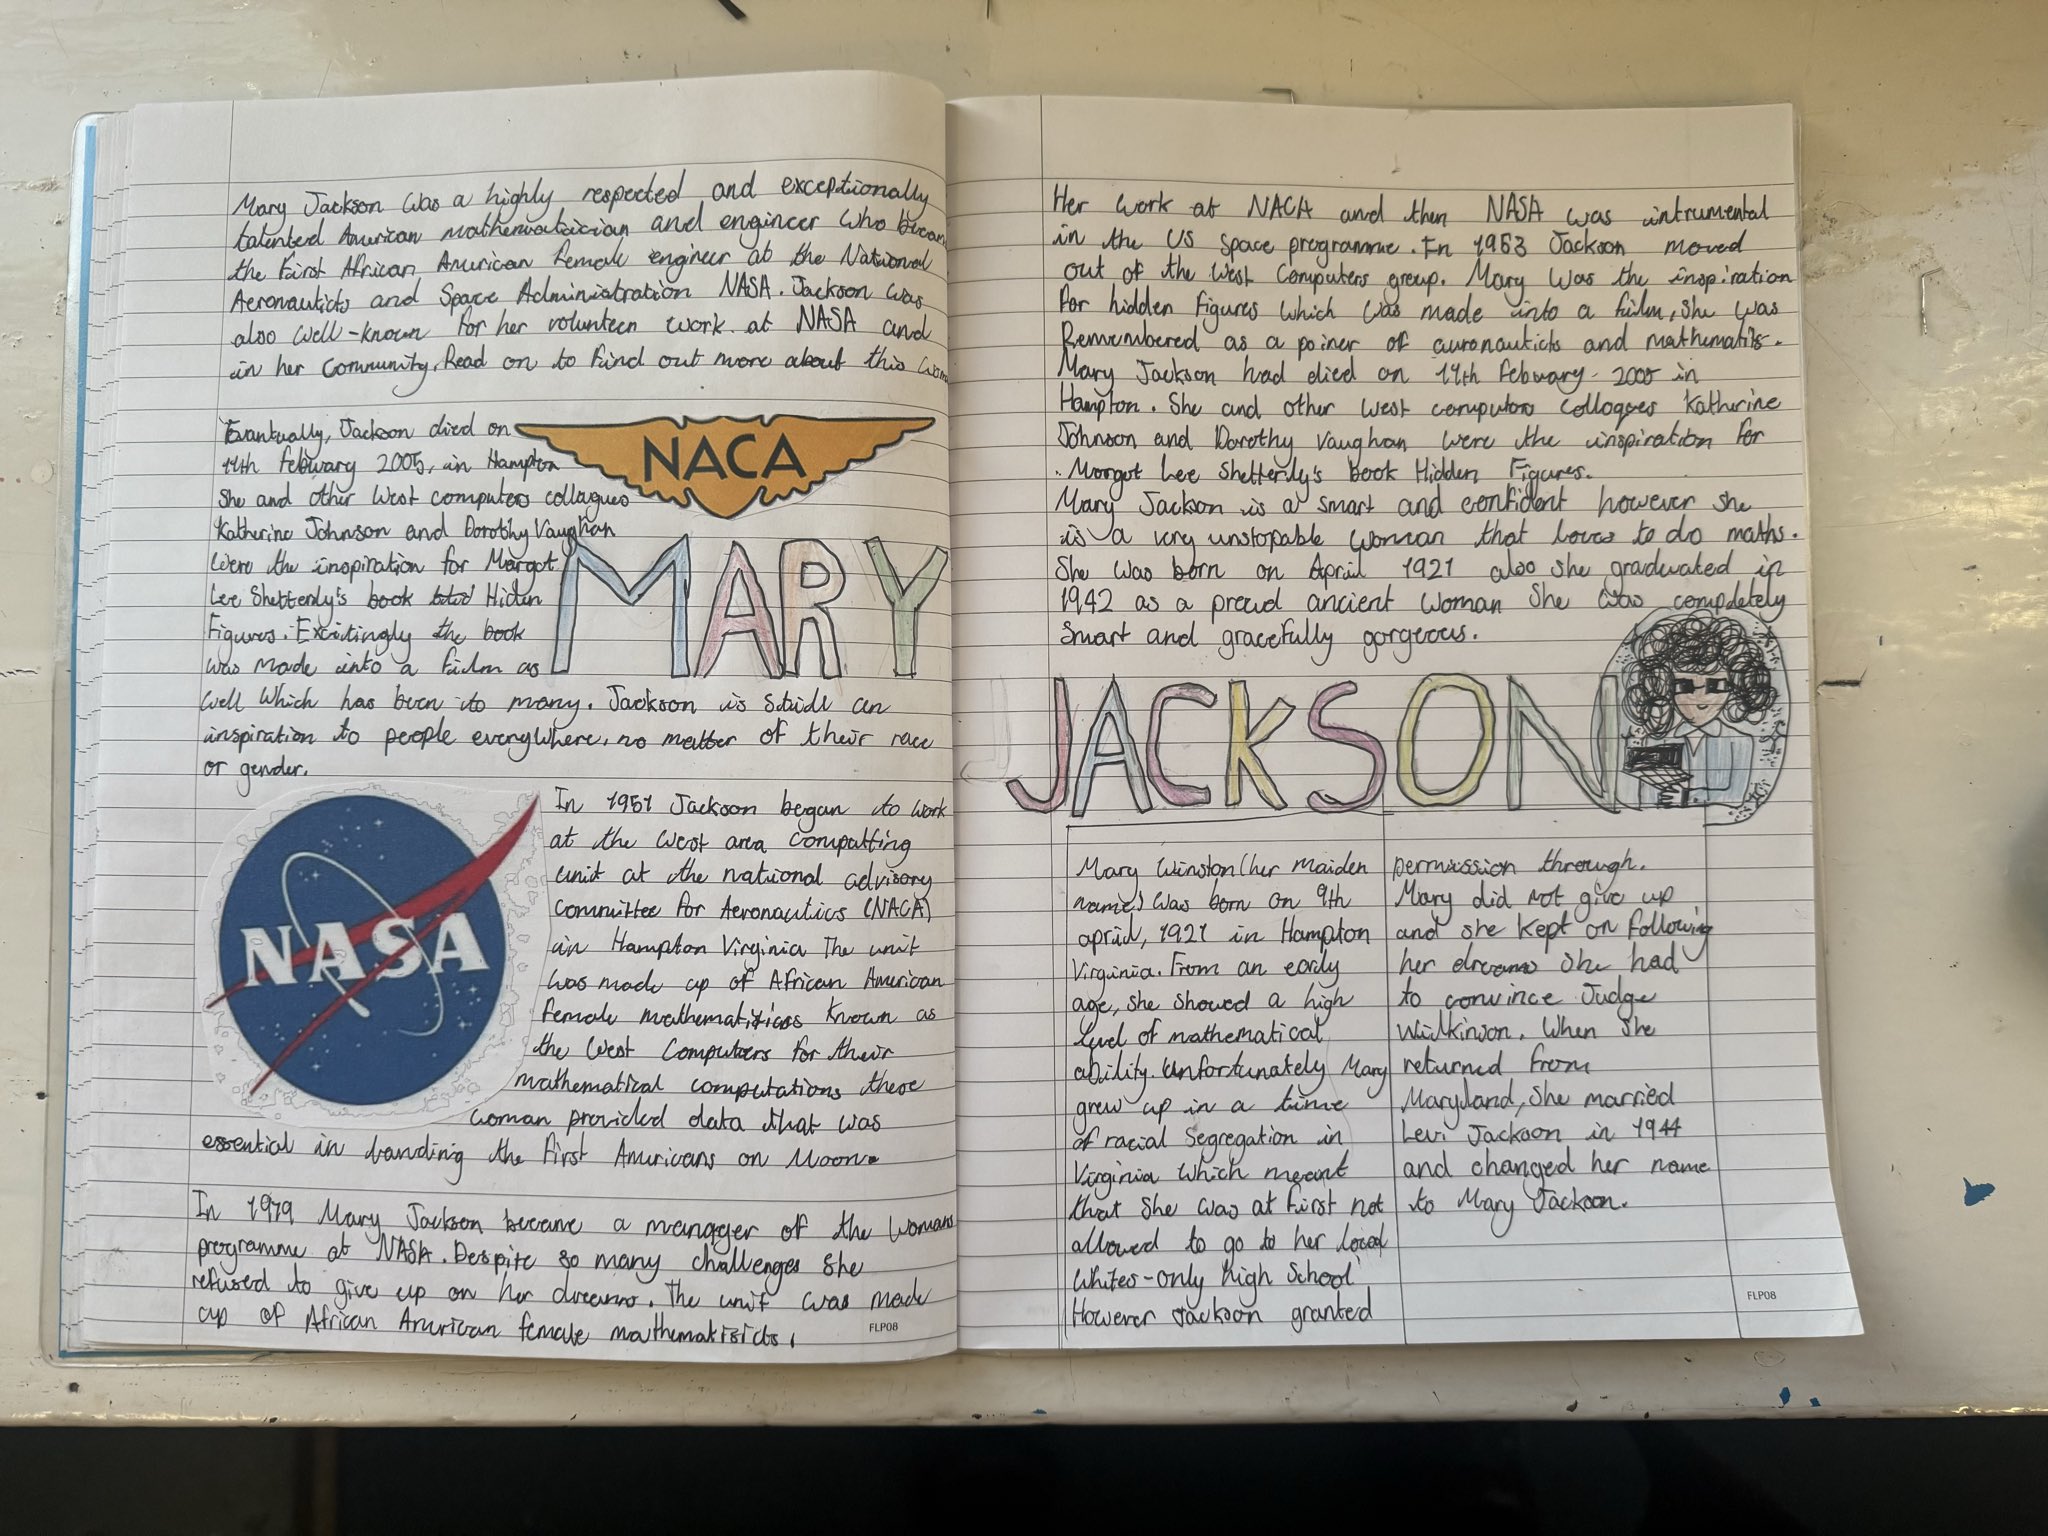 Mary Jackson was a highly respected and exceptionally
talented American mathematician and engineer who becam
the first African American female engineer at the National
Aeronauticts and Space Administration NASA. Jackson was
also well-known for her volunteer work at NASA and
in her community. Read on to find out more about this
Evantually, Jackson died on
11th febuary 2005, in Hampton
She and other West computers collagues
Katherine Johnson and Dorothy Vaughan
were the inspiration for Margot
Lee Shetterly's book Hiden
Figures. Excitingly the book
was made into a film as
well which has been to many. Jackson is still an
inspiration to people everywhere, no matter of their race
or gender.
NACA
MARY
NASA
In 1951 Jackson began to work
at the West area Computting
unit at the national advisory
Committee for Aeronautics (NACA)
in Hampton Virginia The unit
was made up of African American
female mathematicias known as
the West Computers for their
mathematical computations these
woman provided data that was
essential in landing the first Americans on Moon.
In 1979 Mary Jackson became a mangger of the womans
programme at NASA. Despite so many challenges she
refused to give up on her dreams. The unit was made
up of African American female mathematisicts.
FLP08
Her work at NACA and then NASA was intrumental
in the US space programme. In 1953 Jackson moved
out of the West Computers group. Mary was the inspiration
for hidden figures which was made into a film, She was
Remembered as a poiner of auronauticts and mathematits.
Mary Jackson had died on 11th febuary 2005 in
Hampton. She and other West computors collogues Katherine
Johnson and Dorothy Vaughan were the inspiration for
Morgot Lee Shetterly's book Hidden Figures.
Mary Jackson is a smart and confident however she
is a very unstopable woman that loves to do maths.
She was born on April 1921 also she graduated in
1942 as a proud ancient woman She was completely
smart and gracefully gorgeous.
JACKSON
Mary Winston (her maiden
name) was born on 9th
april, 1921 in Hampton
Virginia. From an early
age, she showed a high
level of mathematical
ability. Unfortunately Mary
grew up in a time
of racial segregation in
Virginia which meant
that she was at first not
allowed to go to her local
whites-only high School
However Jackson granted
permission through.
Mary did not give up
and she kept on following
her dreams she had
to convince Judge
Wilkinson. When she
returned from
Maryland, she married
Levi Jackson in 1944
and changed her name
to Mary Jackson.
FLP08